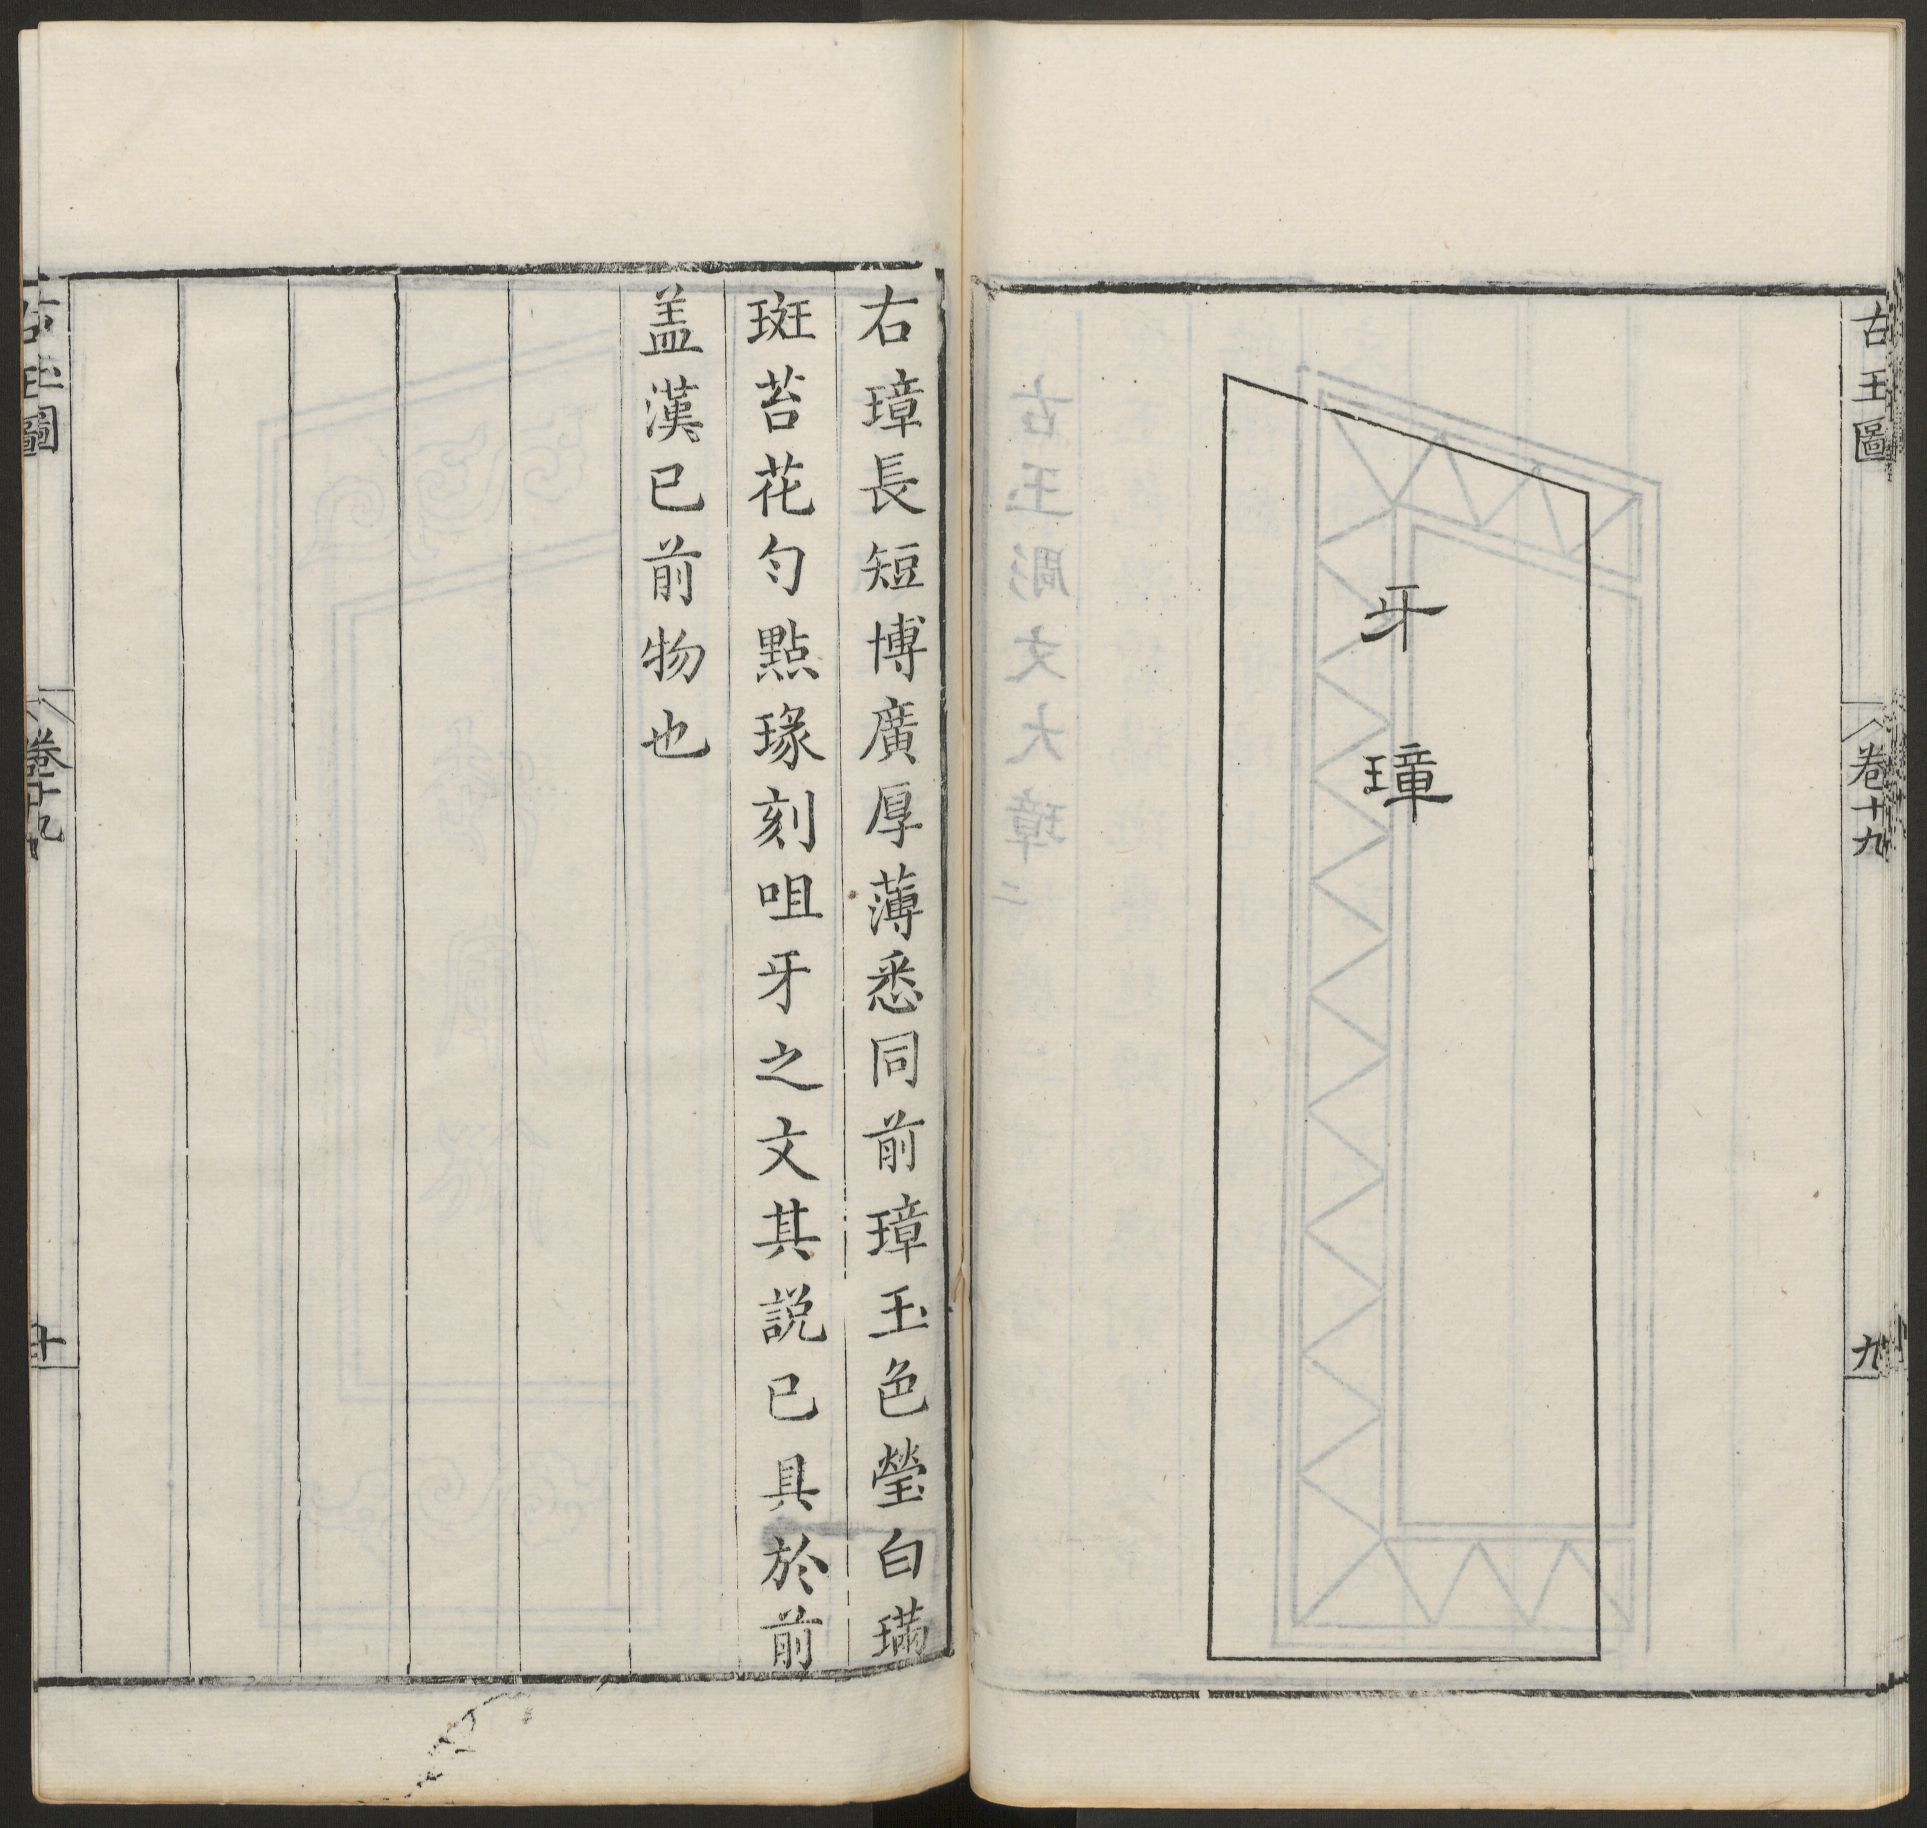 古玉圖
卷十九
九
牙璋
右璋長短博廣厚薄悉同前璋玉色瑩白璊
斑苔花勻點瑑刻咀牙之文其説已具於前
盖漢已前物也
古玉圖
卷十九
十